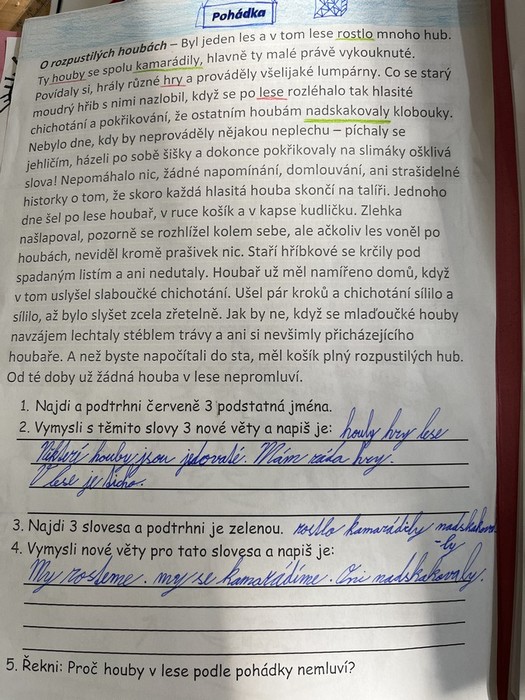 Pohádka
O rozpustilých houbách – Byl jeden les a v tom lese rostlo mnoho hub.
Ty houby se spolu kamarádily, hlavně ty malé právě vykouknuté.
Povídaly si, hrály různé hry a prováděly všelijaké lumpárny. Co se starý
moudrý hřib s nimi nazlobil, když se po lese rozléhalo tak hlasité
chichotání a pokřikování, že ostatním houbám nadskakovaly klobouky.
Nebylo dne, kdy by neprováděly nějakou neplechu – píchaly se
jehličím, házeli po sobě šišky a dokonce pokřikovaly na slimáky ošklivá
slova! Nepomáhalo nic, žádné napomínání, domlouvání, ani strašidelné
historky o tom, že skoro každá hlasitá houba skončí na talíři. Jednoho
dne šel po lese houbař, v ruce košík a v kapse kudličku. Zlehka
našlapoval, pozorně se rozhlížel kolem sebe, ale ačkoliv les voněl po
houbách, neviděl kromě prašivek nic. Staří hříbkové se krčily pod
spadaným listím a ani nedutaly. Houbař už měl namířeno domů, když
v tom uslyšel slaboučké chichotání. Ušel pár kroků a chichotání sílilo a
sílilo, až bylo slyšet zcela zřetelně. Jak by ne, když se mlaďoučké houby
navzájem lechtaly stéblem trávy a ani si nevšimly přicházejícího
houbaře. A než byste napočítali do sta, měl košík plný rozpustilých hub.
Od té doby už žádná houba v lese nepromluví.
1. Najdi a podtrhni červeně 3 podstatná jména.
2. Vymysli s těmito slovy 3 nové věty a napiš je: houby hry lese
Některé houby jsou jedovaté. Mám ráda hry.
V lese je ticho.
3. Najdi 3 slovesa a podtrhni je zelenou. rostlo kamarádily nadskakova
-ly
4. Vymysli nové věty pro tato slovesa a napiš je:
My rosteme. my se kamarádíme. Oni nadskakovaly.
5. Řekni: Proč houby v lese podle pohádky nemluví?